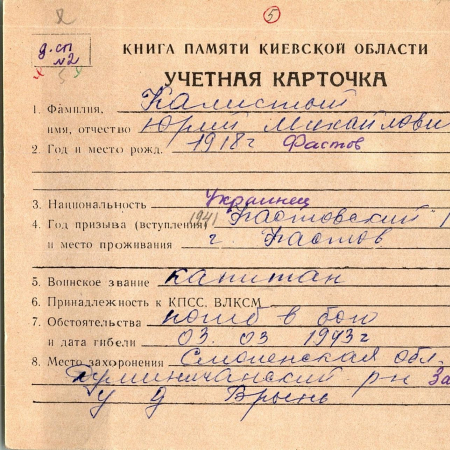 5
д. сп
№2
КНИГА ПАМЯТИ КИЕВСКОЙ ОБЛАСТИ
УЧЕТНАЯ КАРТОЧКА
1. Фамилия, Калистый
имя, отчество Юрий Михайлови
2. Год и место рожд. 1918 г Фастов
3. Национальность Украинец
4. Год призыва (вступления) 1941 Фастовский
и место проживания г. Фастов
5. Воинское звание капитан
6. Принадлежность к КПСС. ВЛКСМ
7. Обстоятельства погиб в бою
и дата гибели 03. 03 1943 г
8. Место захоронения Смоленская обл.
Думиничанский р-н За
у д Врынь